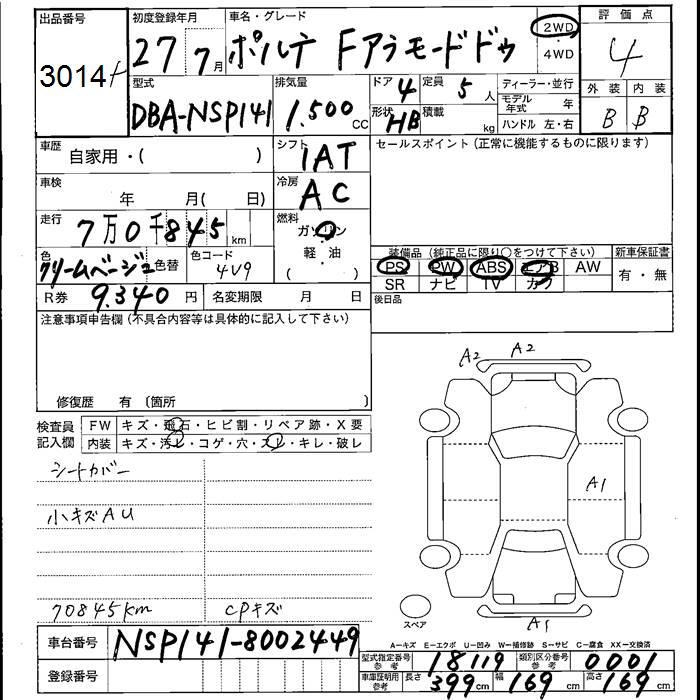 出品番号 初度登録年月 車名・グレード 2WD 評価点
3014 27 7月 ポルテ Fアラモードドゥ 4WD 4
型式 排気量 ドア 定員 ディーラー・並行 外装 内装
DBA-NSP141 1.500 CC 4 5人 モデル年式 年 B B
形状 HB 積載 kg ハンドル 左・右
車歴 自家用・( ) シフト 1AT セールスポイント(正常に機能するものに限ります)
車検 年 月( 日) 冷房 AC
走行 7万0千845 km 燃料 ガソリン
色 クリームベージュ 色替 色コード 4V9 軽・油 ( ) 装備品(純正品に限り○をつけて下さい) 新車保証書
PS PW ABS エアB AW 有・無
R券 9.340 円 名変期限 月 日 SR ナビ TV カワ
後日品
注意事項申告欄(不具合内容等は具体的に記入して下さい)
A2 A2
修復歴 有 〔箇所 〕
検査員記入欄 FW キズ・飛石・ヒビ割・リペア跡・X要
内装 キズ・汚レ・コゲ・穴・スレ・キレ・破レ
シートカバー
A1
小キズAU
70845km CPキズ
スペア A1
車台番号 NSP141-8002449 A-キズ E-エクボ U-凹み W-補修跡 S-サビ C-腐食 XX-交換済
型式指定番号 参考 18119 類別区分番号 参考 0001
登録番号 車庫証明用 参考 長さ 399cm 幅 169cm 高さ 169cm